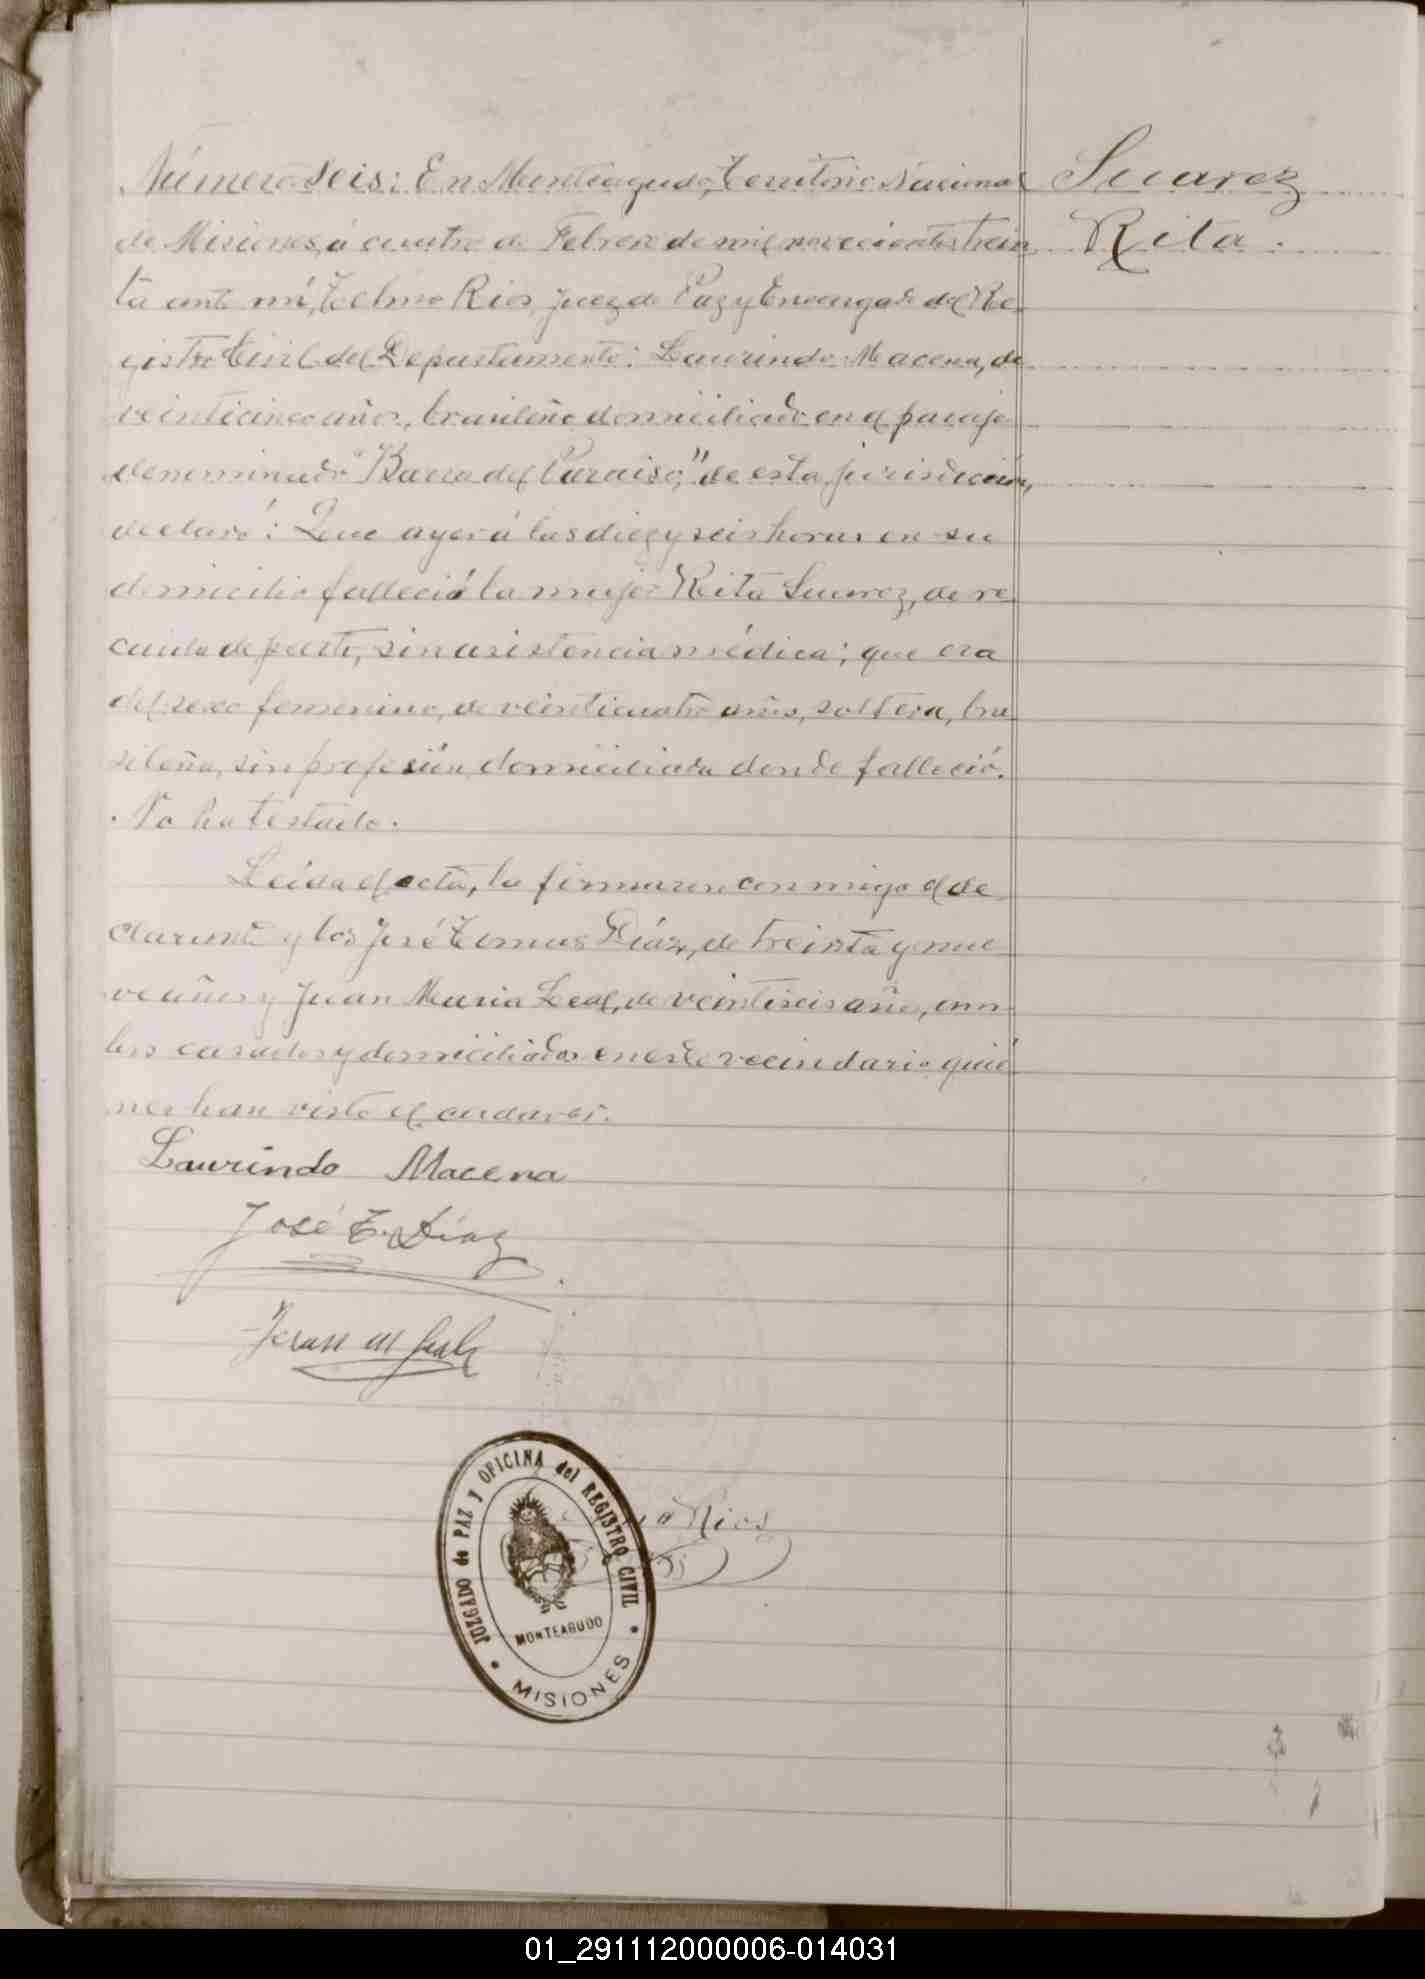 Número Seis: En Monteagudo, Territorio Nacional
de Misiones, á cuatro de Febrero de mil novecientos trein
ta ante mí, Telmo Rios, Juez de Paz y Encargado del Re-
gistro Civil del Departamento: Laurindo Macena, de
veinticinco años, brasileño domiciliado en el paraje
denominado "Barra del Paraiso," de esta jurisdicción,
declaró: Que ayer á las diez y seis horas en su
domicilio falleció la mujer Rita Suarez, de re-
caida de parto, sin asistencia médica; que era
del sexo femenino, de veinticuatro años, soltera, bra-
sileña, sin profesión, domiciliada donde falleció.
No ha testado.
Leida el acta, la firmaron conmigo el de-
clarante y los José Tomas Díaz, de treinta y nue-
ve años y Juan Maria Leal, de veintiseis años, am-
bos casados y domiciliados en este vecindario quié-
nes han visto el cadaver.
Laurindo Macena
José T. Díaz
Juan M Leal
Rios
JUZGADO de PAZ y OFICINA del REGISTRO CIVIL
MONTEAGUDO
• MISIONES •
Suarez
Rita.
01_291112000006-014031